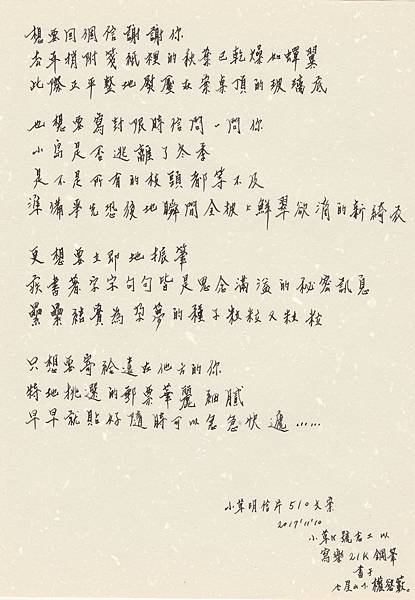 想要回個信謝謝你
去年捎附箋紙裡的秋葉已乾燥如蟬翼
此際正平整地熨壓在案桌頂的玻璃底
也想要寫封限時信問一問你
小島是否逃離了冬季
是不是所有的枝頭都等不及
準備爭先恐後地瞬間全披上鮮翠欲滴的新綺衣
更想要立即地振筆
疾書著字字句句皆是思念滿溢的秘密訊息
纍纍結實為孕夢的種子粒粒又粒粒
只想要寄給遠在他方的你
特地挑選的郵票華麗細膩
早早就貼好隨時可以急急快遞......
小草明信片510文案
2017'11'10
小草K號志工以
寫樂21K鋼筆
書于